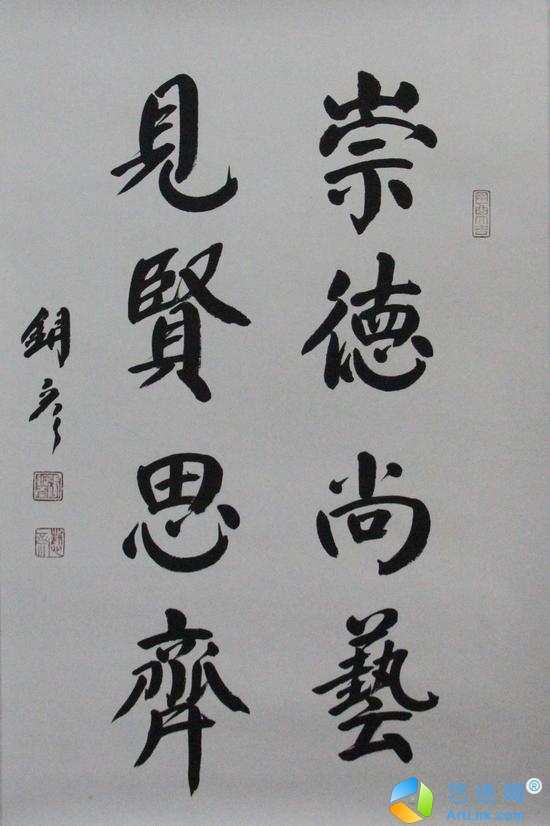 崇德尚藝
見賢思齊
艺连网®
ArtLnk.com